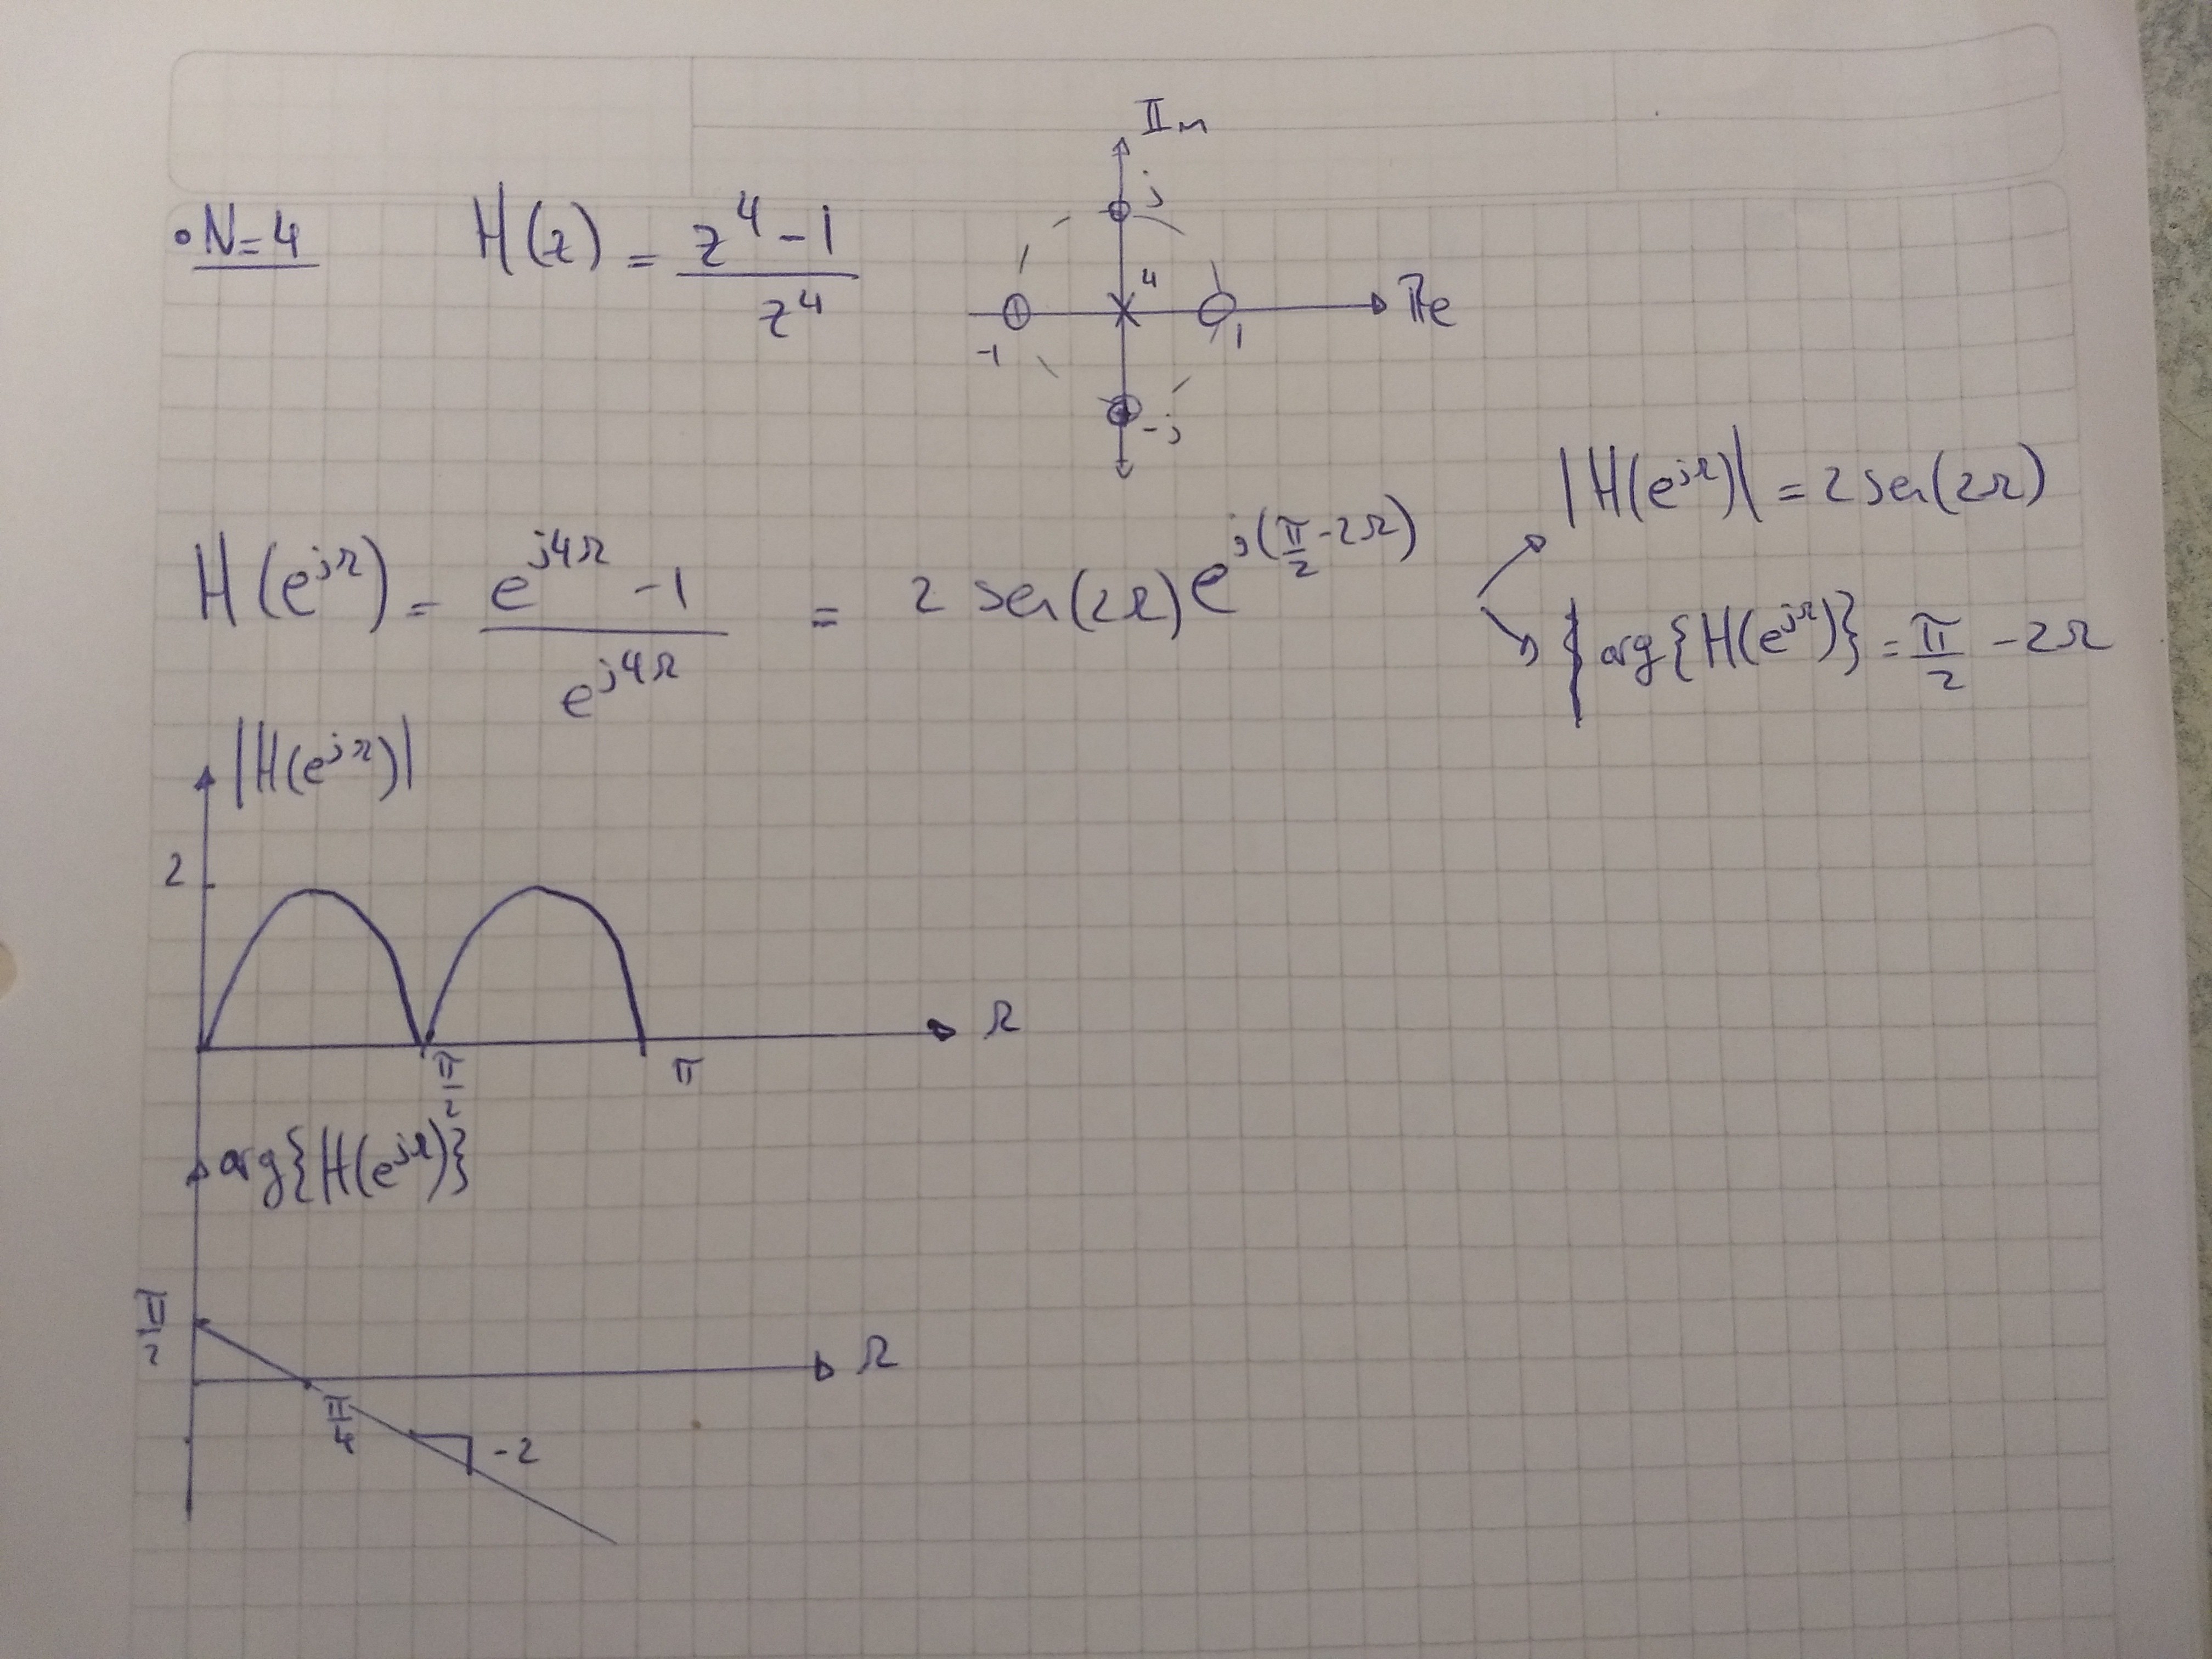 • N=4 H(z) = (z^4 - 1) / z^4
IIm
j
4
Re
-1
1
-j
H(e^{jΩ}) = (e^{j4Ω} - 1) / e^{j4Ω} = 2 sen(2Ω) e^{j(π/2 - 2Ω)}
|H(e^{jΩ})| = 2 sen(2Ω)
arg{H(e^{jΩ})} = π/2 - 2Ω
|H(e^{jΩ})|
2
Ω
π/2
π
arg{H(e^{jΩ})}
π/2
Ω
π/4
-2